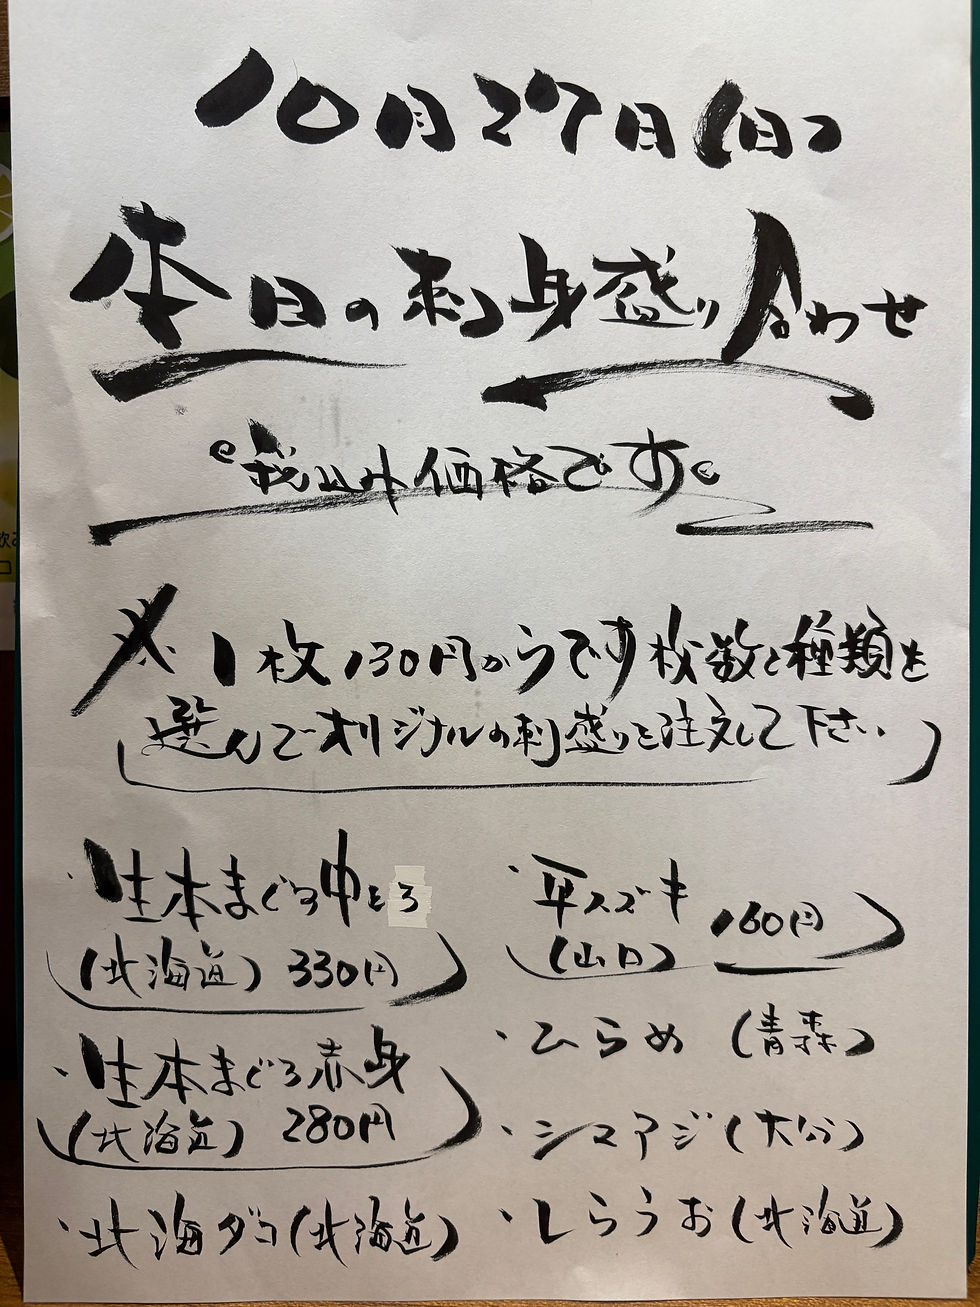 10月27日(日)
本日の刺身盛り合わせ
税込み価格です。
※1枚130円からです枚数と種類を
選んでオリジナルの刺盛りを注文して下さい
・生本まぐろ中とろ
(北海道) 330円
・生本まぐろ赤身
(北海道) 280円
・北海ダコ(北海道)
・平スズキ
(山口) 160円
・ひらめ (青森)
・シマアジ(大分)
・しらうお(北海道)